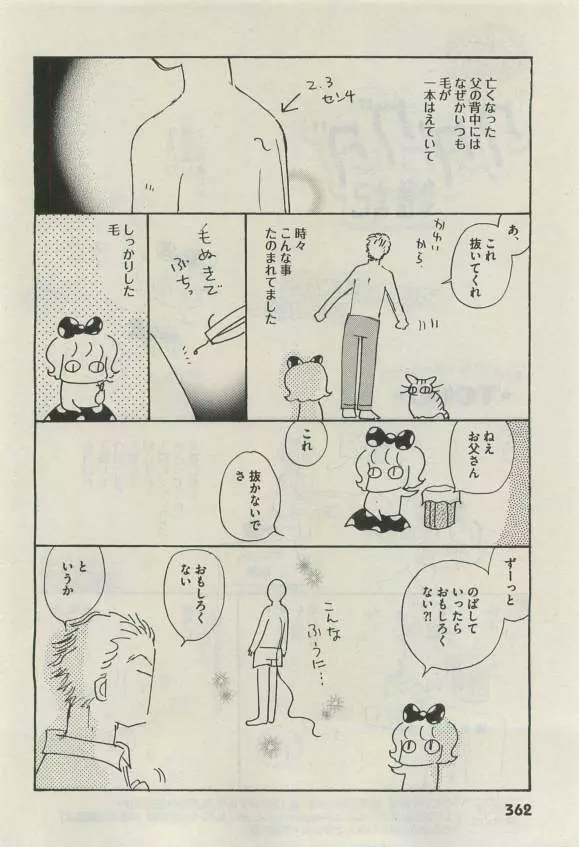 亡くなった
父の背中には
なぜかいつも
毛が
一本はえていて
2.3
センチ
あ、
これ
抜いてくれ
かわいい
から、
時々
こんな事
たのまれてました
毛ぬきで
ぶちっ
しっかりした
毛
ねえ
お父さん
これ
抜かないで
さ
ずーっと
のばして
いったら
おもしろく
ない?!
こんな
ふうに…
おもしろく
ない
と
いうか
362